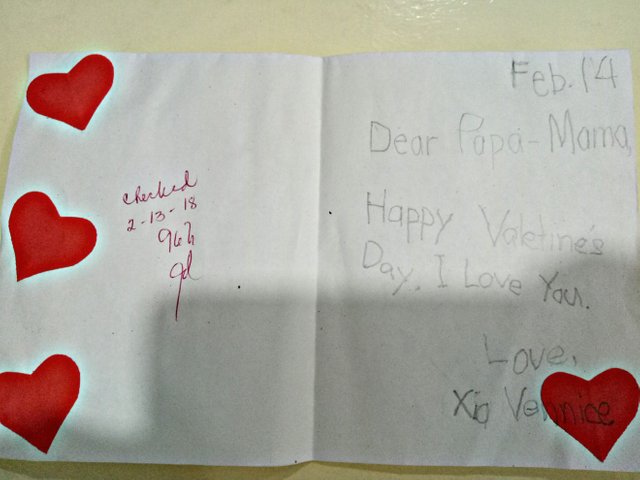 checked
2-13-18
Feb. 14
Dear Papa-Mama,
Happy Valetine's
Day. I Love You.
Love,
Xia Vennice